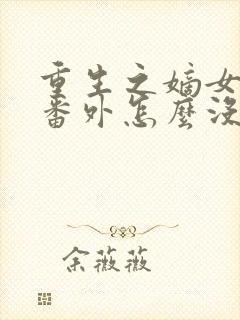 重生之嫡女
番外怎麼沒
余薇薇